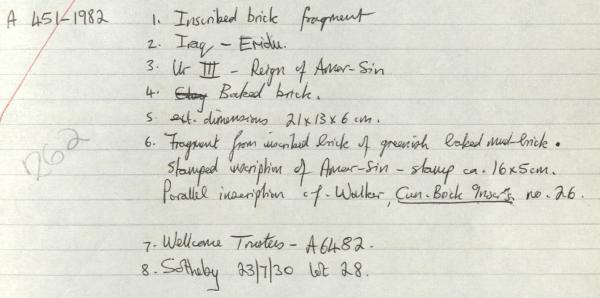 A 451-1982
1. Inscribed brick fragment
2. Iraq - Eridu.
3. Ur III - Reign of Amar-Sin
4. Clay Baked brick.
5. ext. dimensions 21x13x6 cm.
6. Fragment from inscribed brick of greenish baked mud-brick.
Stamped inscription of Amar-Sin - stamp ca. 16x5cm.
Parallel inscription cf. Walker, Cun. Brick Inscr's no. 26.
7. Wellcome Trustees - A6482.
8. Sotheby 23/7/30 lot 28.
262